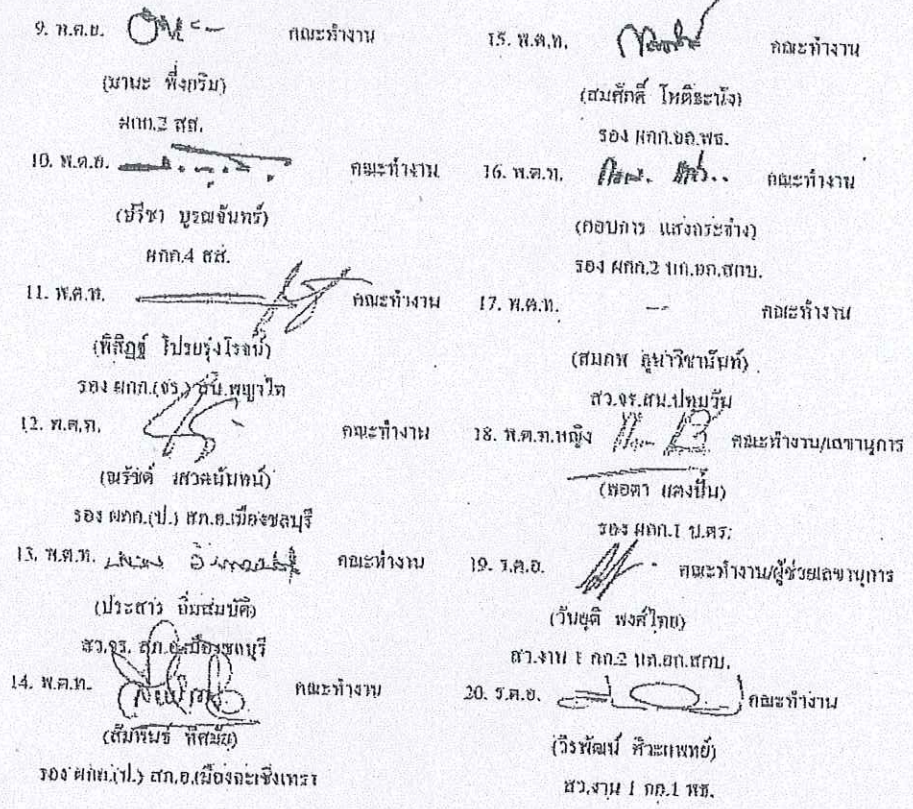 9. พ.ต.อ. คณะทำงาน
(มานะ พึ่งกริม)
ผกก.2 สส.
10. พ.ต.อ. คณะทำงาน
(ปรีชา บูรณจันทร์)
ผกก.4 สส.
11. พ.ต.ท. คณะทำงาน
(พิสิฏฐ์ โปรยรุ่งโรจน์)
รอง ผกก.(จร.) สน.พญาไท
12. พ.ต.ท. คณะทำงาน
(ณรัชต์
รอง ผกก.(ป.) สภ.อ.เมืองชลบุรี
13. พ.ต.ท. คณะทำงาน
(ประสาร อิ่มสมบัติ)
สว.จร. สภ.อ.เมืองชลบุรี
14. พ.ต.ท. คณะทำงาน
(สัมพันธ์
รอง ผกก.(ป.) สภ.อ.เมืองฉะเชิงเทรา
15. พ.ต.ท. คณะทำงาน
(สมศักดิ์ โหติระนัง)
รอง ผกก.อก.พธ.
16. พ.ต.ท. คณะทำงาน
(กอบการ แสงกระจ่าง)
รอง ผกก.2 บก.อก.สกบ.
17. พ.ต.ท. คณะทำงาน
(สมภพ
สว.จร.สน.ปทุมวัน
18. พ.ต.ท.หญิง คณะทำงาน/เลขานุการ
(พอตา แตงปั้น)
รอง ผกก.1
19. ร.ต.อ. คณะทำงาน/ผู้ช่วยเลขานุการ
(วันยุติ พงศ์ไทย)
สว.งาน 1 กก.2 บก.อก.สกบ.
20. ร.ต.อ. คณะทำงาน
(วีรพัฒน์ ศิวะแพทย์)
สว.งาน 1 กก.1 พธ.